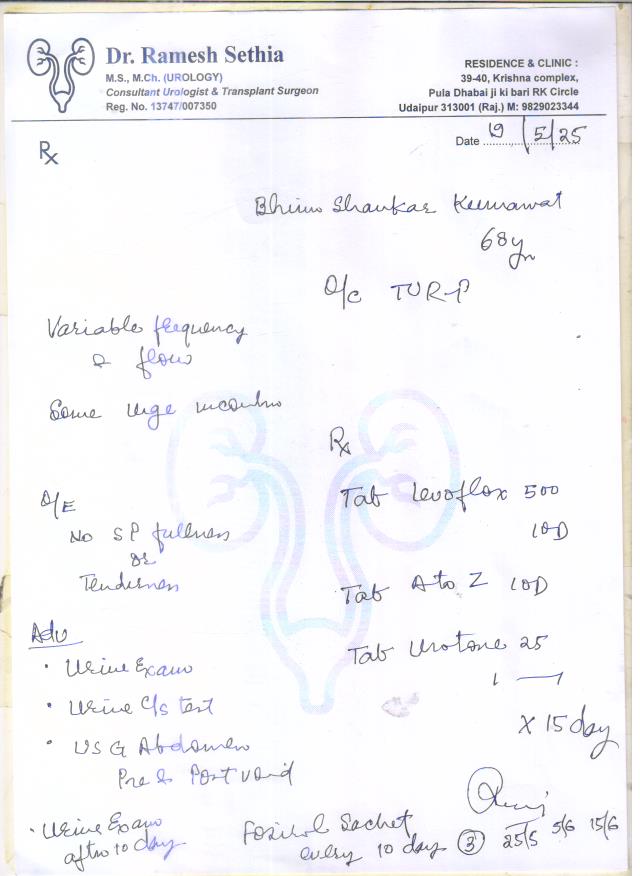 Dr. Ramesh Sethia
M.S., M.Ch. (UROLOGY)
Consultant Urologist & Transplant Surgeon
Reg. No. 13747/007350
RESIDENCE & CLINIC :
39-40, Krishna complex,
Pula Dhabai ji ki bari RK Circle
Udaipur 313001 (Raj.) M: 9829023344
Date 19/5/25
Rx
Shankar Kumawat
68 yr
O/c TUR-P
Variable frequency
& flow
Some urge
O/E
No SP fullness
or
Tenderness
Adv
· Urine Exam
· Urine C/s test
· USG Abdomen
Pre & Post void
· Urine Exam
after 10 day
Rx
Tab Levoflox 500
1OD
Tab A to Z 1OD
Tab Urotone 25
1 — 1
X 15 day
Sachet
every 10 day 3 25/5 5/6 15/6